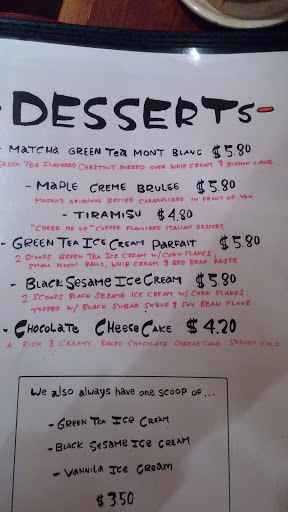 DESSERTS
- MATCHA GREEN TEA MONT BLANC $5.80
GREEN TEA FLAVORED CHESTNUT PUREED OVER WHIP CREAM & CAKE
- MAPLE CREME BRULEE $5.80
MUZHA'S ORIGINAL RECIPE CARAMELIZED IN FRONT OF YOU
- TIRAMISU $4.80
"CHEER ME UP" COFFEE FLAVORED ITALIAN DESSERT
- GREEN TEA ICE CREAM PARFAIT $5.80
2 SCOOPS GREEN TEA ICE CREAM W/CORN FLAKES,
SMALL MOCHI BALLS, WHIP CREAM & RED BEAN PASTE
- BLACK SESAME ICE CREAM $5.80
2 SCOOPS BLACK SESAME ICE CREAM W/ CORN FLAKES
TOPPED W/ BLACK SUGAR SYRUP & SOY BEAN FLOUR
- CHOCOLATE CHEESE CAKE $4.20
A RICH & CREAMY BAKED CHOCOLATE CHEESE CAKE SERVED COLD
We also always have one scoop of...
- GREEN TEA ICE CREAM
- BLACK SESAME ICE CREAM
- VANNILA ICE CREAM
$3.50